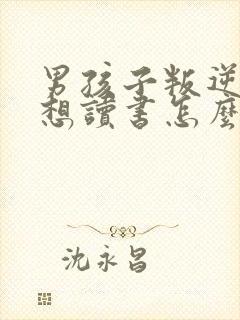 男孩子叛逆
想讀書怎麼
沈永昌